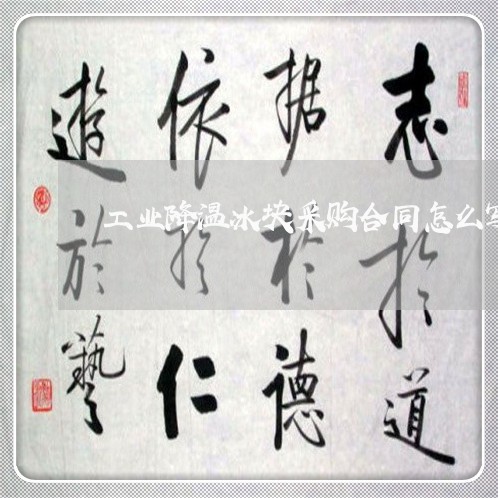 志於道
据於德
依於仁
遊於藝
工业降温冰块采购合同怎么